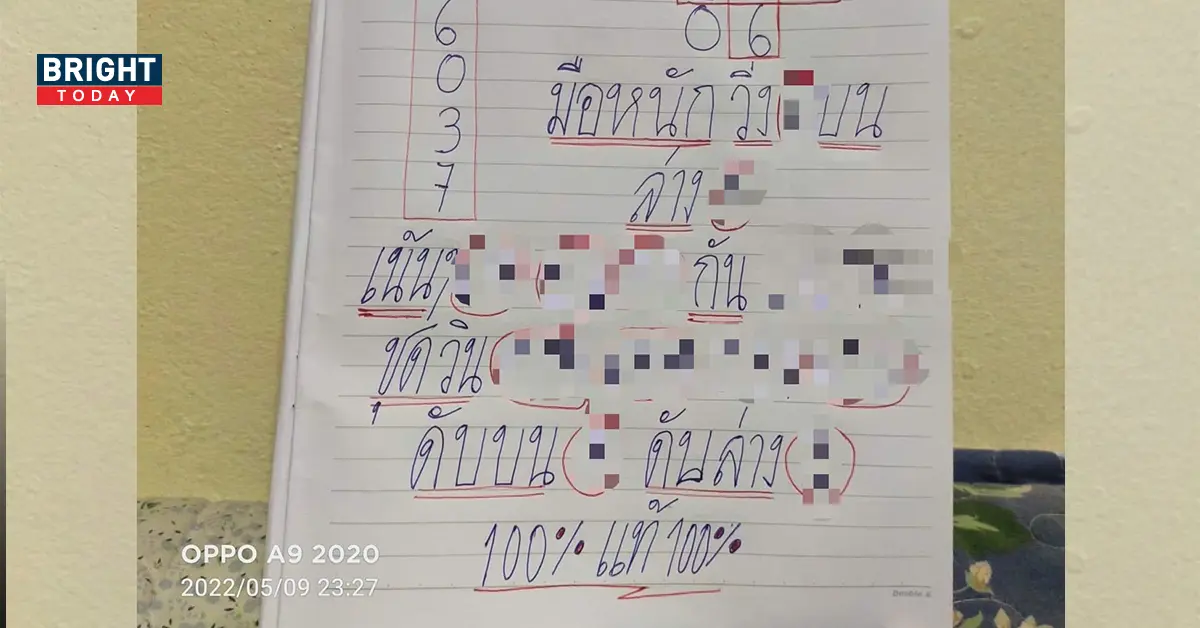 BRIGHT
TODAY
6
0
3
7
06
มือหนัก วิ่ง บน
ล่าง
เน้น
กัน
ชุดวิน
ดับบน ( ) ดับล่าง ( )
100% แท้ 100%
OPPO A9 2020
2022/05/09 23:27
Double A